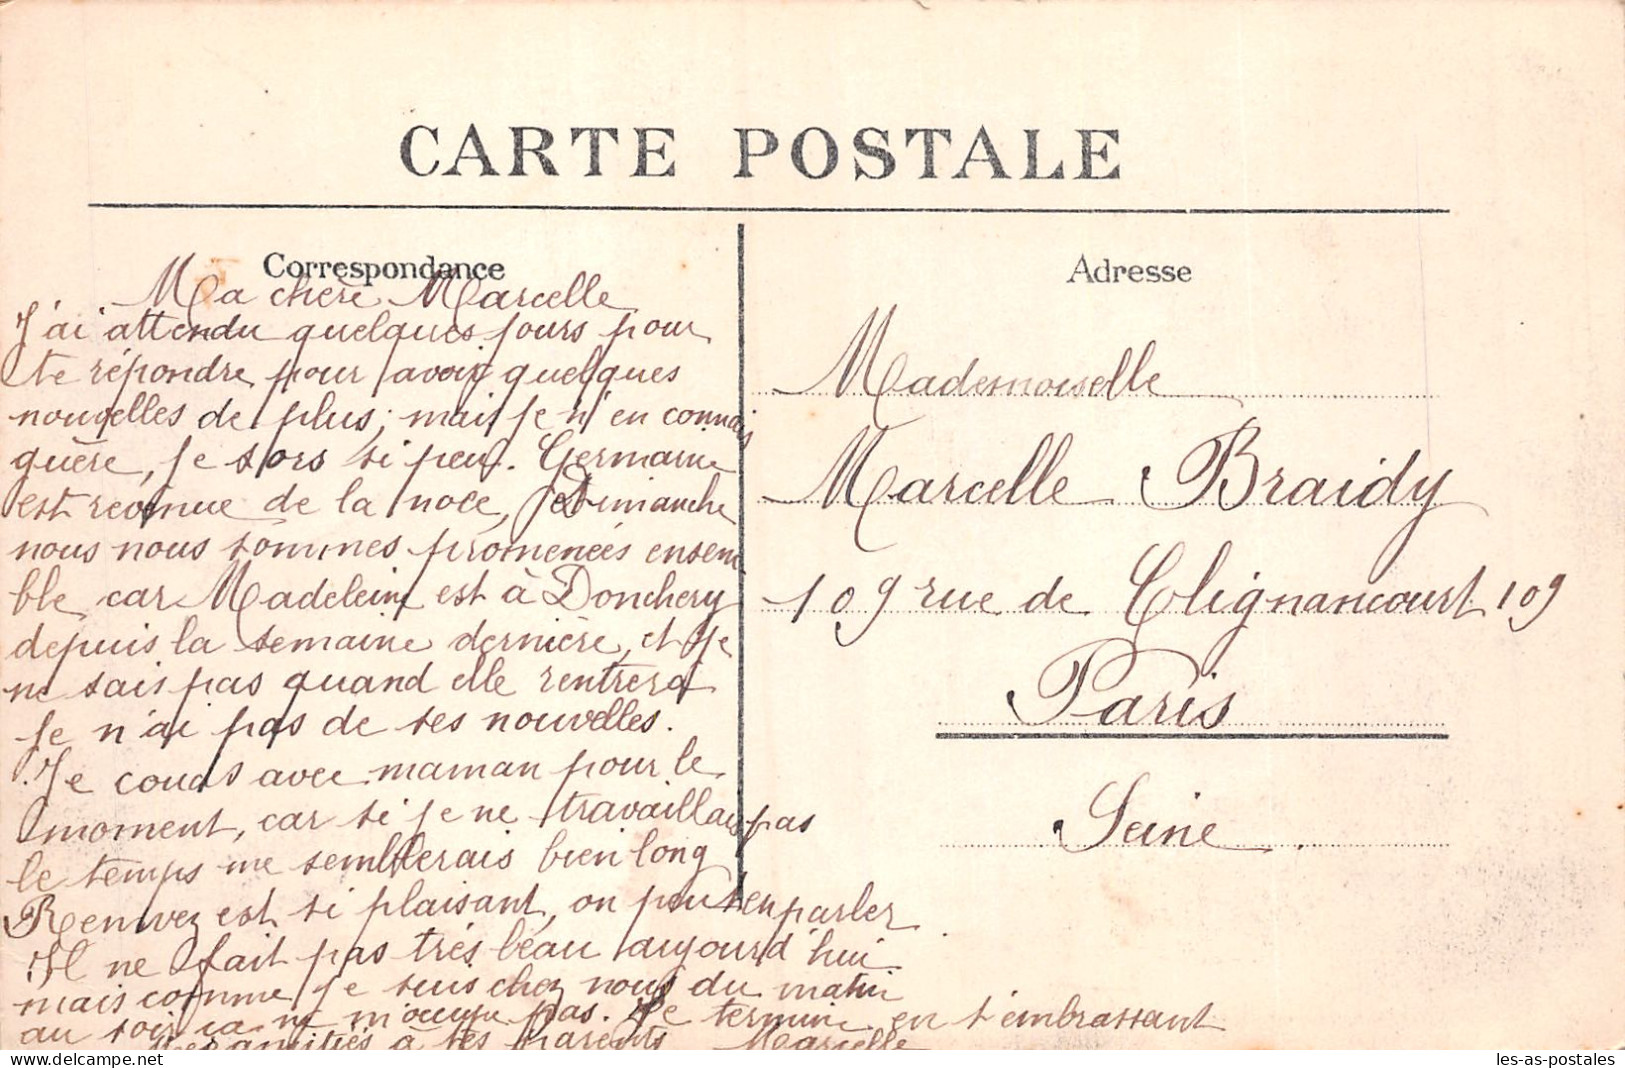 CARTE POSTALE
Correspondance
Ma chère Marcelle
J'ai attendu quelques jours pour
te répondre pour avoir quelques
nouvelles de plus; mais je n'en connais
guère, je sors si peu. Germaine
est revenue de la noce, Dimanche
nous nous sommes promenées ensem
ble car Madeleine est à Donchery
depuis la semaine dernière, et je
ne sais pas quand elle rentrera
je n'ai pas de ses nouvelles.
Je couds avec maman pour le
moment, car si je ne travaillais pas
le temps me semblerais bien long
Renwez est si plaisant, on peut en parler
Il ne fait pas très beau aujourd'hui
mais comme je suis chez nous du matin
au soir ça ne m'occupe pas. Je termine en t'embrassant
amitiés à tes parents Marcelle
Adresse
Mademoiselle
Marcelle Braidy
109 rue de Clignancourt 109
Paris
Seine
delcampe.net
les-as-postales